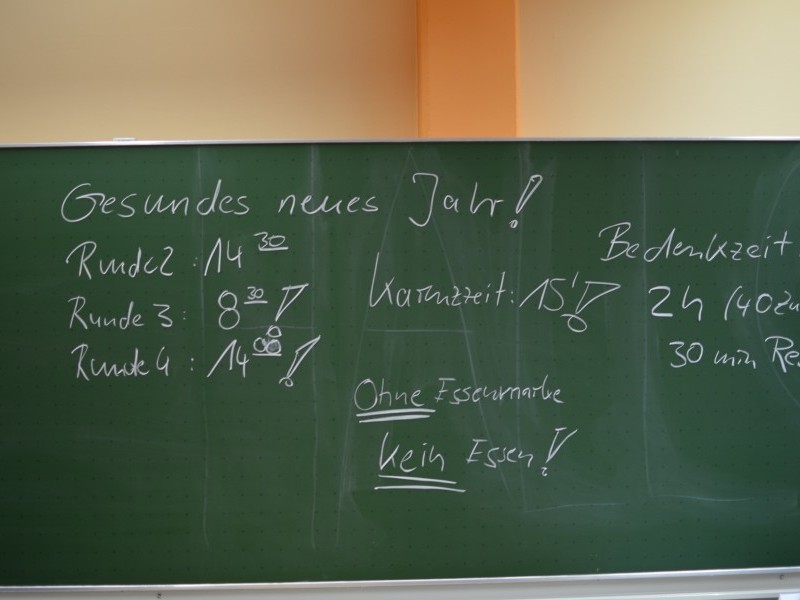 Gesundes neues Jahr!
Runde 2 : 14 30
Runde 3 : 8 30 !
Runde 4 : 14 !
Karrnzzeit: 15' !
Ohne Essenmarke
kein Essen!
Bedenkzeit:
2h (40zu
30 min Re